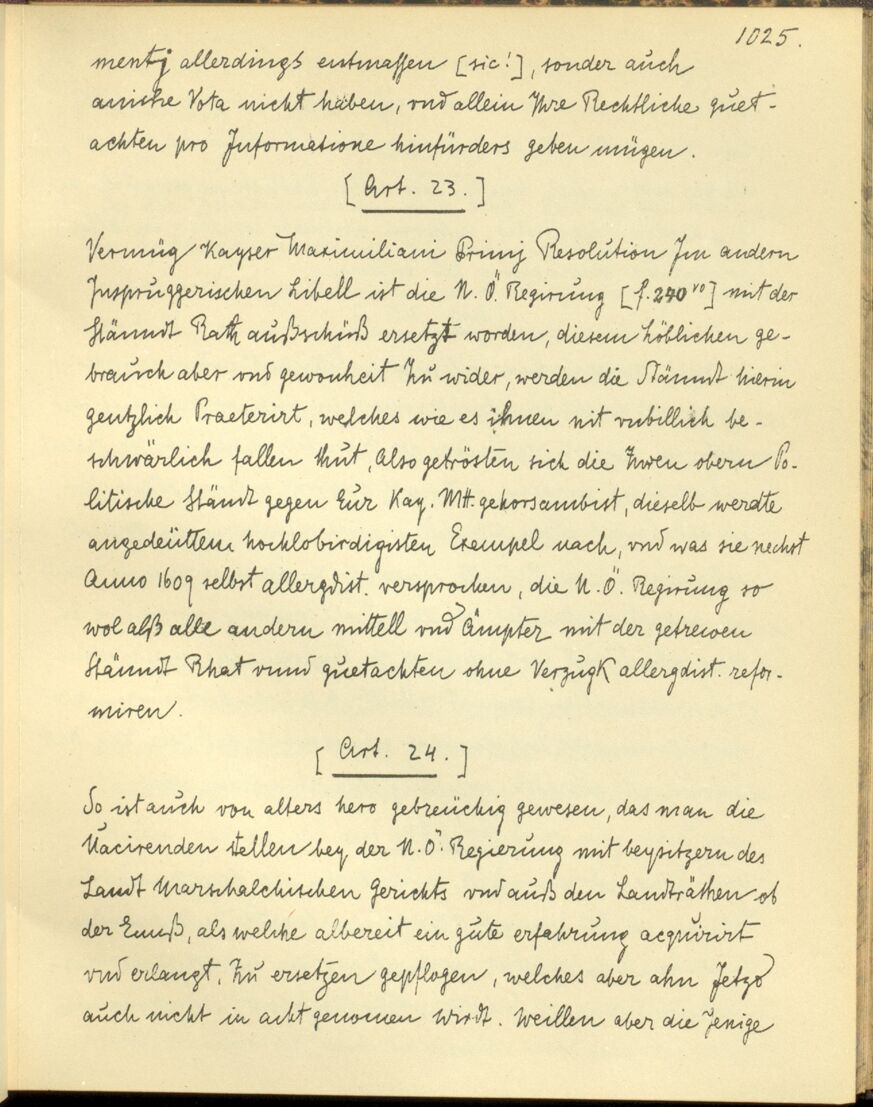 1025.
mentj allerdings entmassen [sic!], sonder auch
ainiche Vota nicht haben, vnd allein Ihre Rechtliche guet-
achten pro Informatione hinfürders geben mügen.
[Art. 23.]
Vermüg Kayser Maximiliani Primj Resolution Im andern
Inspruggerischen Libell ist die N. Ö. Regirung [f. 240 vo] mit der
Stänndt Rath außschüß ersetzt worden, diesem löblichen ge-
brauch aber vnd gewonheit Zu wider, werden die Stänndt hierin
gentzlich Praeterirt, welches wie es ihnen nit vnbillich be-
schwärlich fallen thut, Also getrösten sich die Zwen obern Po-
litische Ständt gegen Eur Kay. Mtt. gehorsambist, dieselb werdte
angedeüttem hochlobirdigisten Exempel nach, vnd was sie nechst
Anno 1609 selbst allergdist. versprochen, die N. Ö. Regirung so
wol alß alle andern mittell vnd Ämpter mit der getrewen
Stänndt Rhat vnnd guetachten ohne Verzugk allergdist. refor-
miren.
[Art. 24.]
So ist auch von alters hero gebreüchig gewesen, das man die
Vacirenden stellen bey der N. Ö. Regierung mit beysitzern des
Landt Marschalchischen Gerichts vnd auß den Landträthen ob
der Ennß, als welche albereit ein gute erfahrung acquirirt
vnd erlangt, Zu ersetzen gepflogen, welches aber ahn Jetzo
auch nicht in acht genomen wirdt. Weillen aber die Jenige